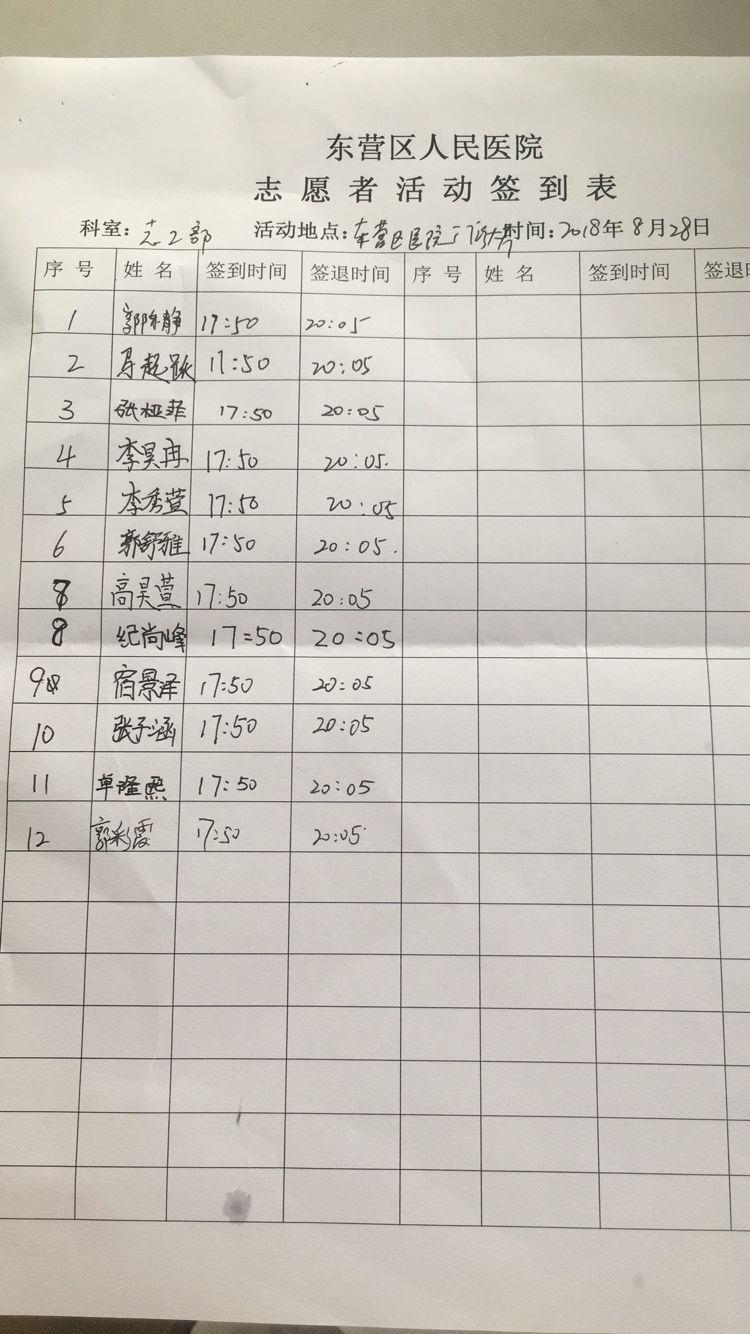 东营区人民医院
志愿者活动签到表
科室：志工部 活动地点：东营区医院门诊大厅 时间：2018年8月28日
序号 姓名 签到时间 签退时间 序号 姓名 签到时间 签退
1 郭静 17:50 20:05
2 马起跃 17:50 20:05
3 张桠菲 17:50 20:05
4 李昊冉 17:50 20:05.
5 李秀萱 17:50 20:05
6 郭舒雅 17:50 20:05.
8 高昊萱 17:50 20:05
8 纪尚峰 17=50 20=05
9 宿景泽 17:50 20:05
10 张子涵 17:50 20:05
11 单隆熙 17:50 20:05
12 郭彩霞 17:50 20:05